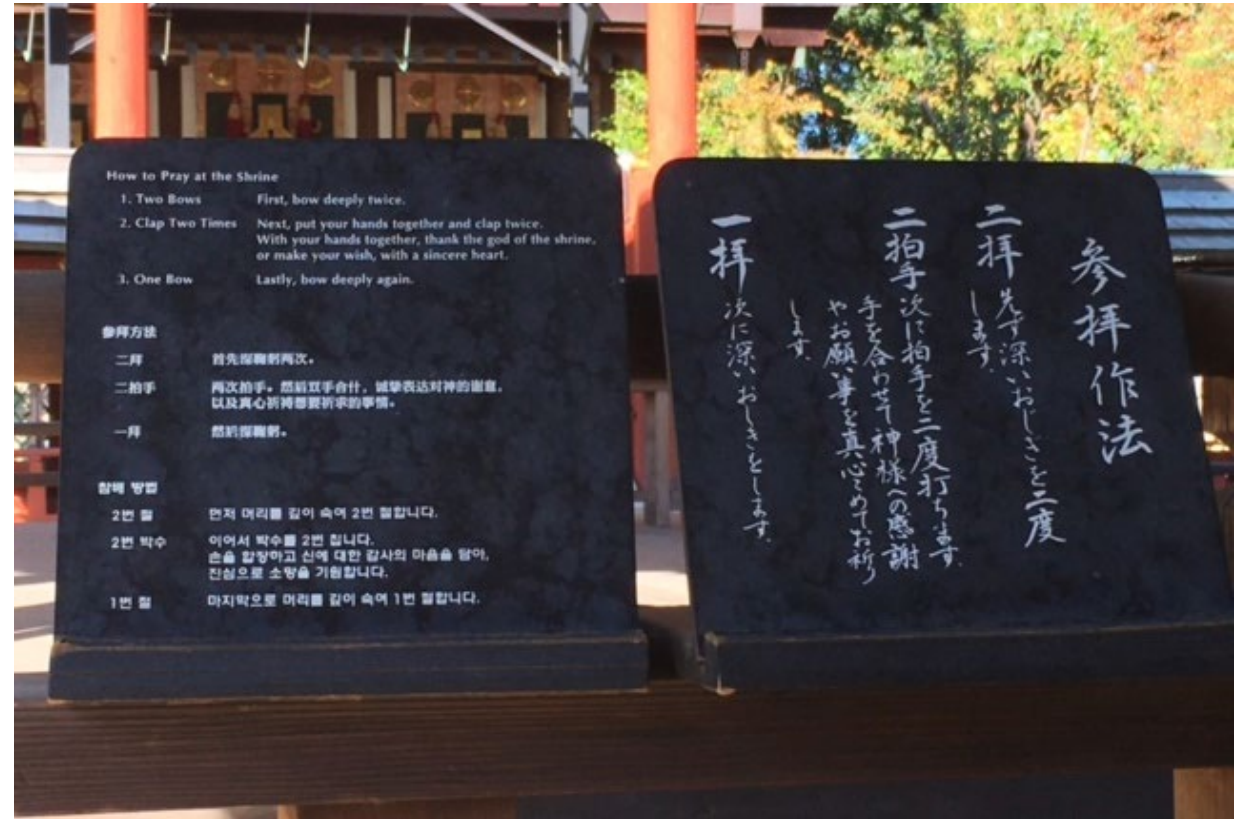 How to Pray at the Shrine
1. Two Bows First, bow deeply twice.
2. Clap Two Times Next, put your hands together and clap twice.
With your hands together, thank the god of the shrine,
or make your wish, with a sincere heart.
3. One Bow Lastly, bow deeply again.
参拜方法
二拜 首先深鞠躬两次。
二拍手 两次拍手。然后双手合什，诚挚表达对神的谢意，
以及真心祈祷想要祈求的事情。
一拜 然后深鞠躬。
참배 방법
2번 절 먼저 머리를 깊이 숙여 2번 절합니다.
2번 박수 이어서 박수를 2번 칩니다.
손을 합장하고 신에 대한 감사의 마음을 담아,
진심으로 소망을 기원합니다.
1번 절 마지막으로 머리를 깊이 숙여 1번 절합니다.
参拝作法
二拝 先ず深いおじぎを二度
します。
二拍手 次に拍手を二度打ちます。
手を合わせて神様への感謝
やお願い事を真心こめてお祈り
します。
一拝 次に深いおじぎをします。